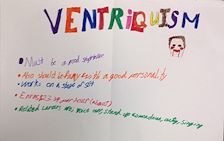 VENTRIQUISM
Must be a good
Also should be funny with a good personality
works on a stage or set
Earns $23 per hour (about)
Related careers are, voice over, stand up comedian, acting, singing